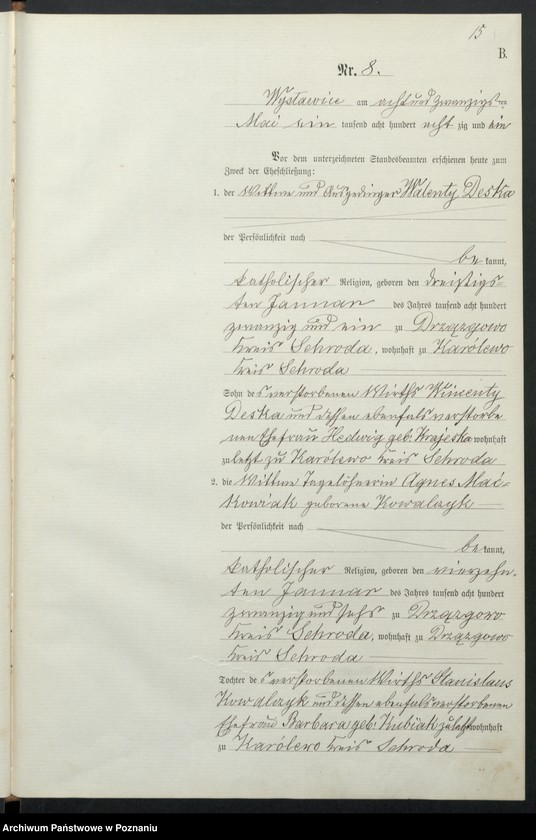 15
B.
Nr. 8.
Wysławice am acht und zwanzigs ten
Mai ein tausend acht hundert acht zig und ein
Vor dem unterzeichneten Standesbeamten erschienen heute zum
Zweck der Eheschließung:
1. der Wittwe und Ausgedinger Walenty Deska
der Persönlichkeit nach
be kannt,
katholischer Religion, geboren den dreißigs-
ten Januar des Jahres tausend acht hundert
zwanzig und ein zu Drzązgowo
Kreis Schroda, wohnhaft zu Karólewo
Kreis Schroda
Sohn des verstorbenen Wirths Wincenty
Deska und dessen ebenfals verstorbe
nen Ehefrau Hedwig geb. Krajeska wohnhaft
zuletzt zu Karólewo Kreis Schroda
2. die Wittwe Tagelöhnerin Agnes Mać-
kowiak geborene Kowalczyk
der Persönlichkeit nach
be kannt,
katholischer Religion, geboren den vierzehn-
ten Januar des Jahres tausend acht hundert
zwanzig und sechs zu Drzązgowo
Kreis Schroda, wohnhaft zu Drzązgowo
Kreis Schroda
Tochter des verstorbenen Wirths Stanislaus
Kowalczyk und dessen ebenfals verstorbenen
Ehefrau Barbara geb. Kubiak zuletzt wohnhaft
zu Karólewo Kreis Schroda
Archiwum Państwowe w Poznaniu